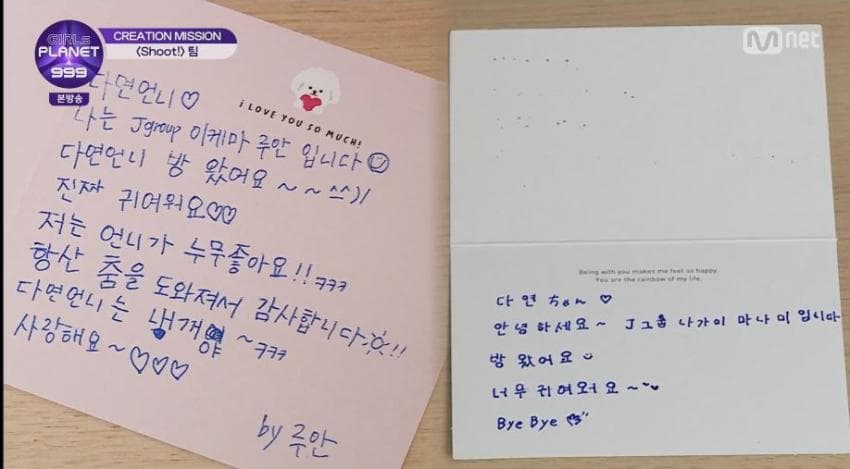 GIRLS
PLANET
999
본방송
CREATION MISSION
〈Shoot!〉 팀
Mnet
I LOVE YOU SO MUCH!
다연언니♡
나는 Jgroup 이케마 루안 입니다☺
다연언니 방 왔어요~~^^)/
진짜 귀여워요♡♡
저는 언니가 누무좋아요!! ㅋㅋㅋ
항산 춤을 도와져서 감사합니다☼!!
다연언니는 내개얌~ㅋㅋㅋ
사랑해요~♡♡♡
by 루안
Being with you makes me feel so happy.
You are the rainbow of my life.
다연ちゃん ♡
안녕하세요~ J그룹 나가이 마나미 입니다
방 왔어요
너무 귀여워요~
Bye Bye